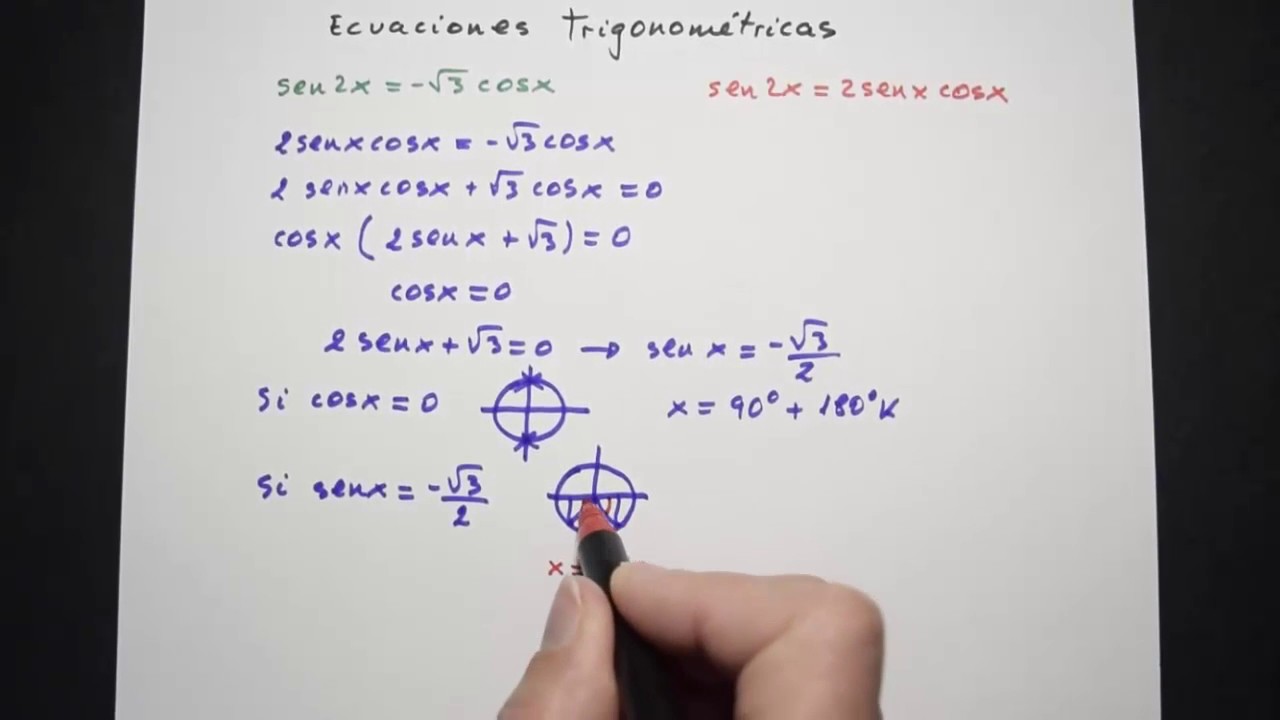 Ecuaciones Trigonométricas
sen 2x = -√3 cosx
sen 2x = 2senx cosx
2senxcosx = -√3cosx
2 senxcosx + √3 cosx = 0
cosx (2senx + √3) = 0
cosx = 0
2 senx + √3 = 0 → sen x = -√3/2
Si cosx = 0
x = 90° + 180°K
Si senx = -√3/2
x =